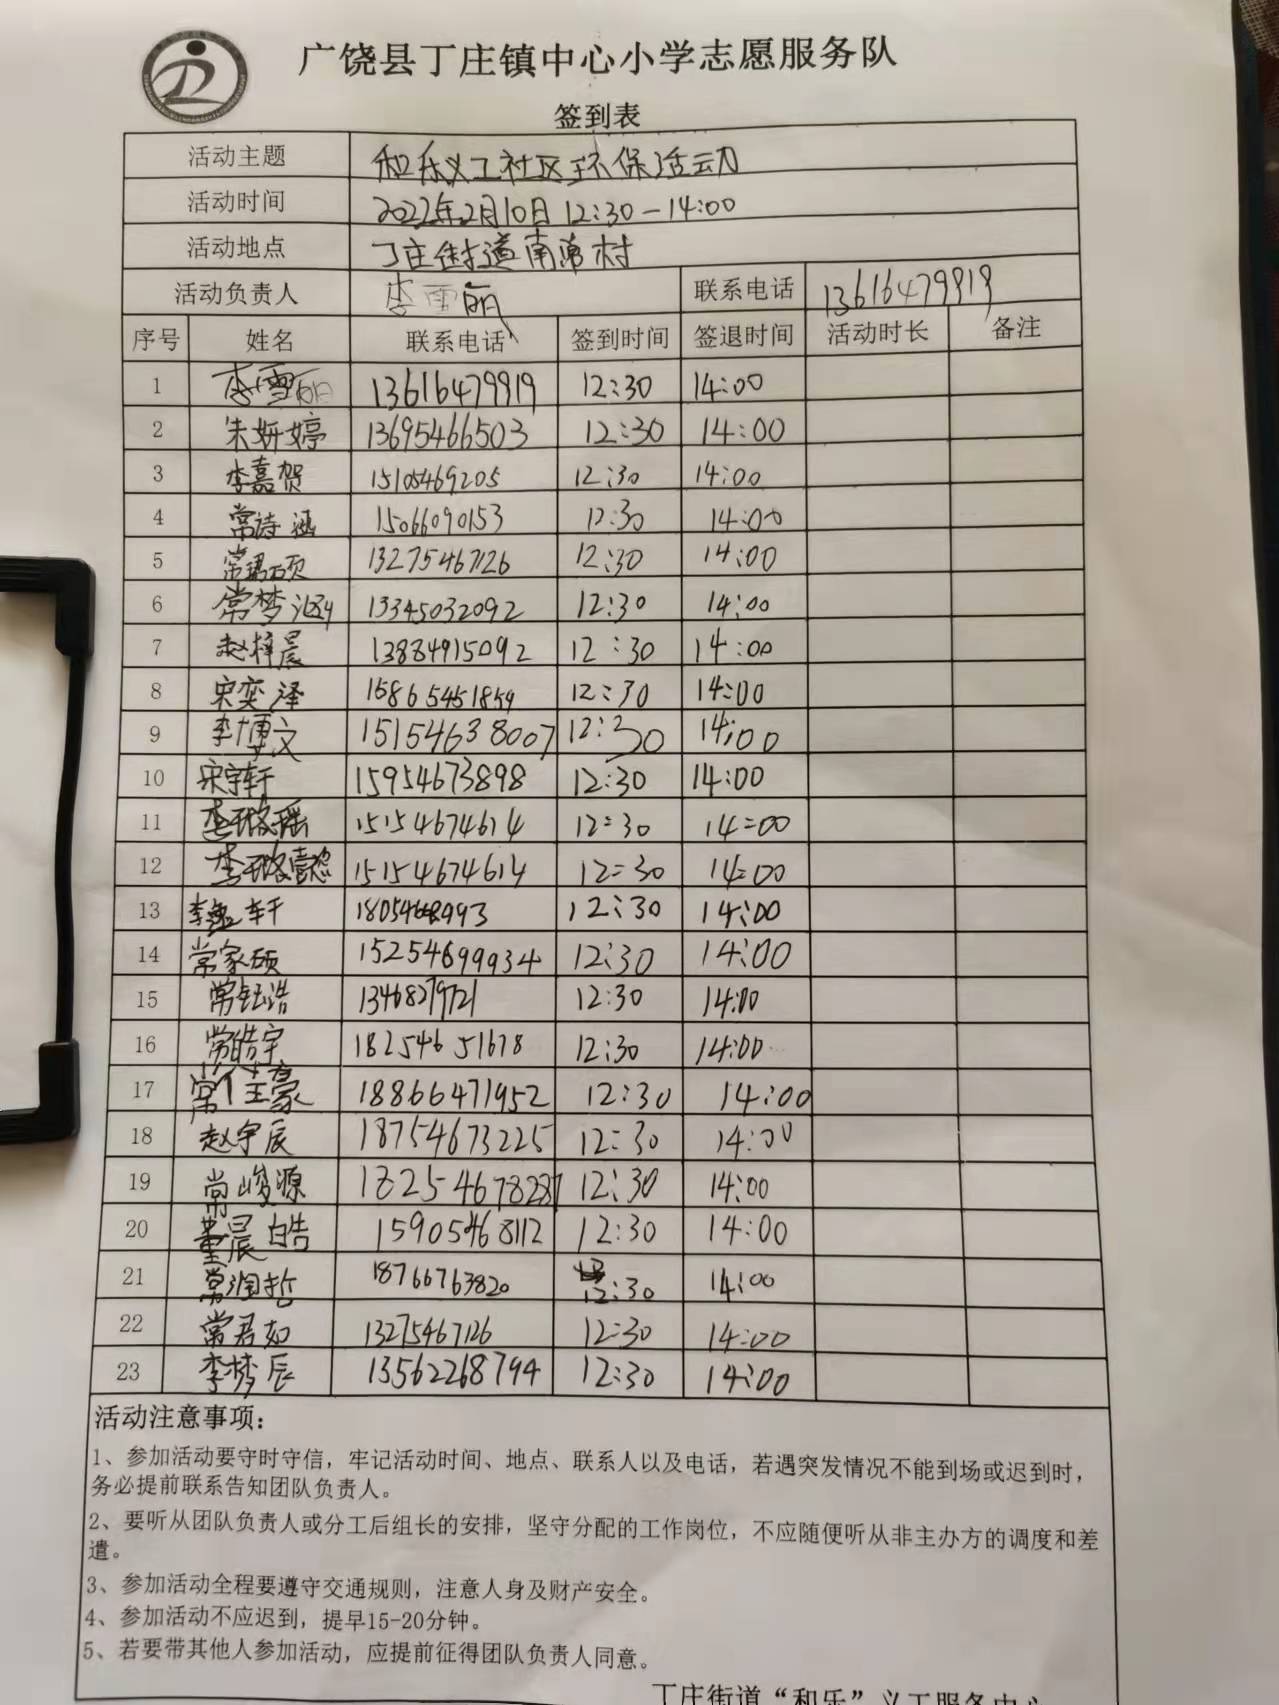 广饶县丁庄镇中心小学志愿服务队
签到表
活动主题 和乐义工社区环保活动
活动时间 2022年2月10日 12:30-14:00
活动地点 丁庄街道南 村
活动负责人 李雪丽 联系电话 13616479919
序号 姓名 联系电话 签到时间 签退时间 活动时长 备注
1 李雪丽 13616479919 12:30 14:00
2 朱妍婷 13695466503 12:30 14:00
3 李嘉贺 15105469205 12:30 14:00
4 常诗涵 15066090153 12:30 14:00
5 常珺硕 13275467126 12:30 14:00
6 常梦 13345032092 12:30 14:00
7 赵梓晨 13884915092 12:30 14:00
8 宋奕泽 15865451859 12:30 14:00
9 李博文 15154638007 12:30 14:00
10 宋宇轩 15954673898 12:30 14:00
11 李璐瑶 15154674614 12:30 14:00
12 李璐 15154674614 12:30 14:00
13 李 轩 18054668993 12:30 14:00
14 常家硕 15254699934 12:30 14:00
15 常钰浩 13468279721 12:30 14:00
16 常皓宇 18254651678 12:30 14:00
17 常 豪 18866471952 12:30 14:00
18 赵宇辰 18754673225 12:30 14:00
19 常峻源 18254678287 12:30 14:00
20 董晨皓 15905468112 12:30 14:00
21 常润哲 18766763820 12:30 14:00
22 常君如 13275467126 12:30 14:00
23 李梦辰 13562268794 12:30 14:00
活动注意事项：
1、参加活动要守时守信，牢记活动时间、地点、联系人以及电话，若遇突发情况不能到场或迟到时，
务必提前联系告知团队负责人。
2、要听从团队负责人或分工后组长的安排，坚守分配的工作岗位，不应随便听从非主办方的调度和差
遣。
3、参加活动全程要遵守交通规则，注意人身及财产安全。
4、参加活动不应迟到，提早15-20分钟。
5、若要带其他人参加活动，应提前征得团队负责人同意。
丁庄街道“和乐”义工服务中心